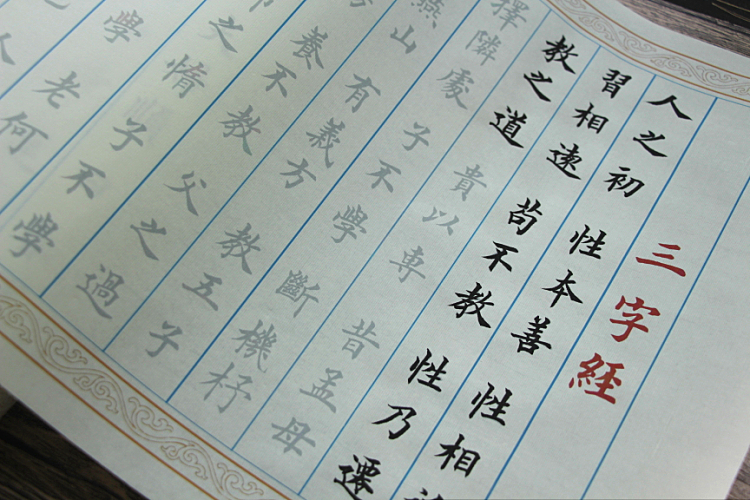 三字經
人之初 性本善 性相
習相遠 苟不教 性乃遷
教之道 貴以専 昔孟母
擇隣處 子不學 斷機杼
燕山 有義方 教五子
養不教 父之過
之惰 子不學
學 老何
人